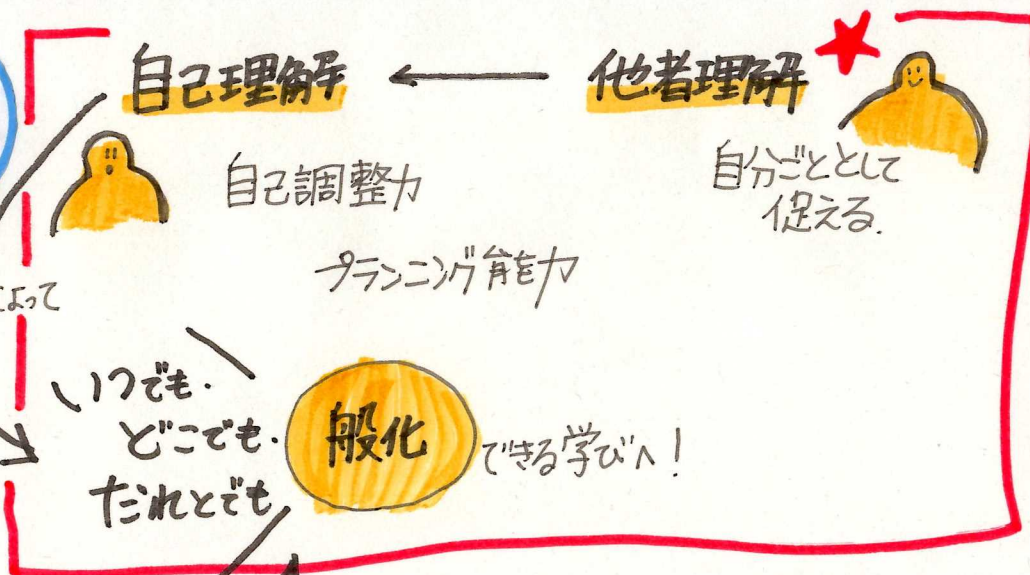 自己理解 ← 他者理解
自己調整力
自分ごととして
促える.
プランニング能力
よって
いつでも・
どこでも・
だれとでも
般化
できる学びへ!